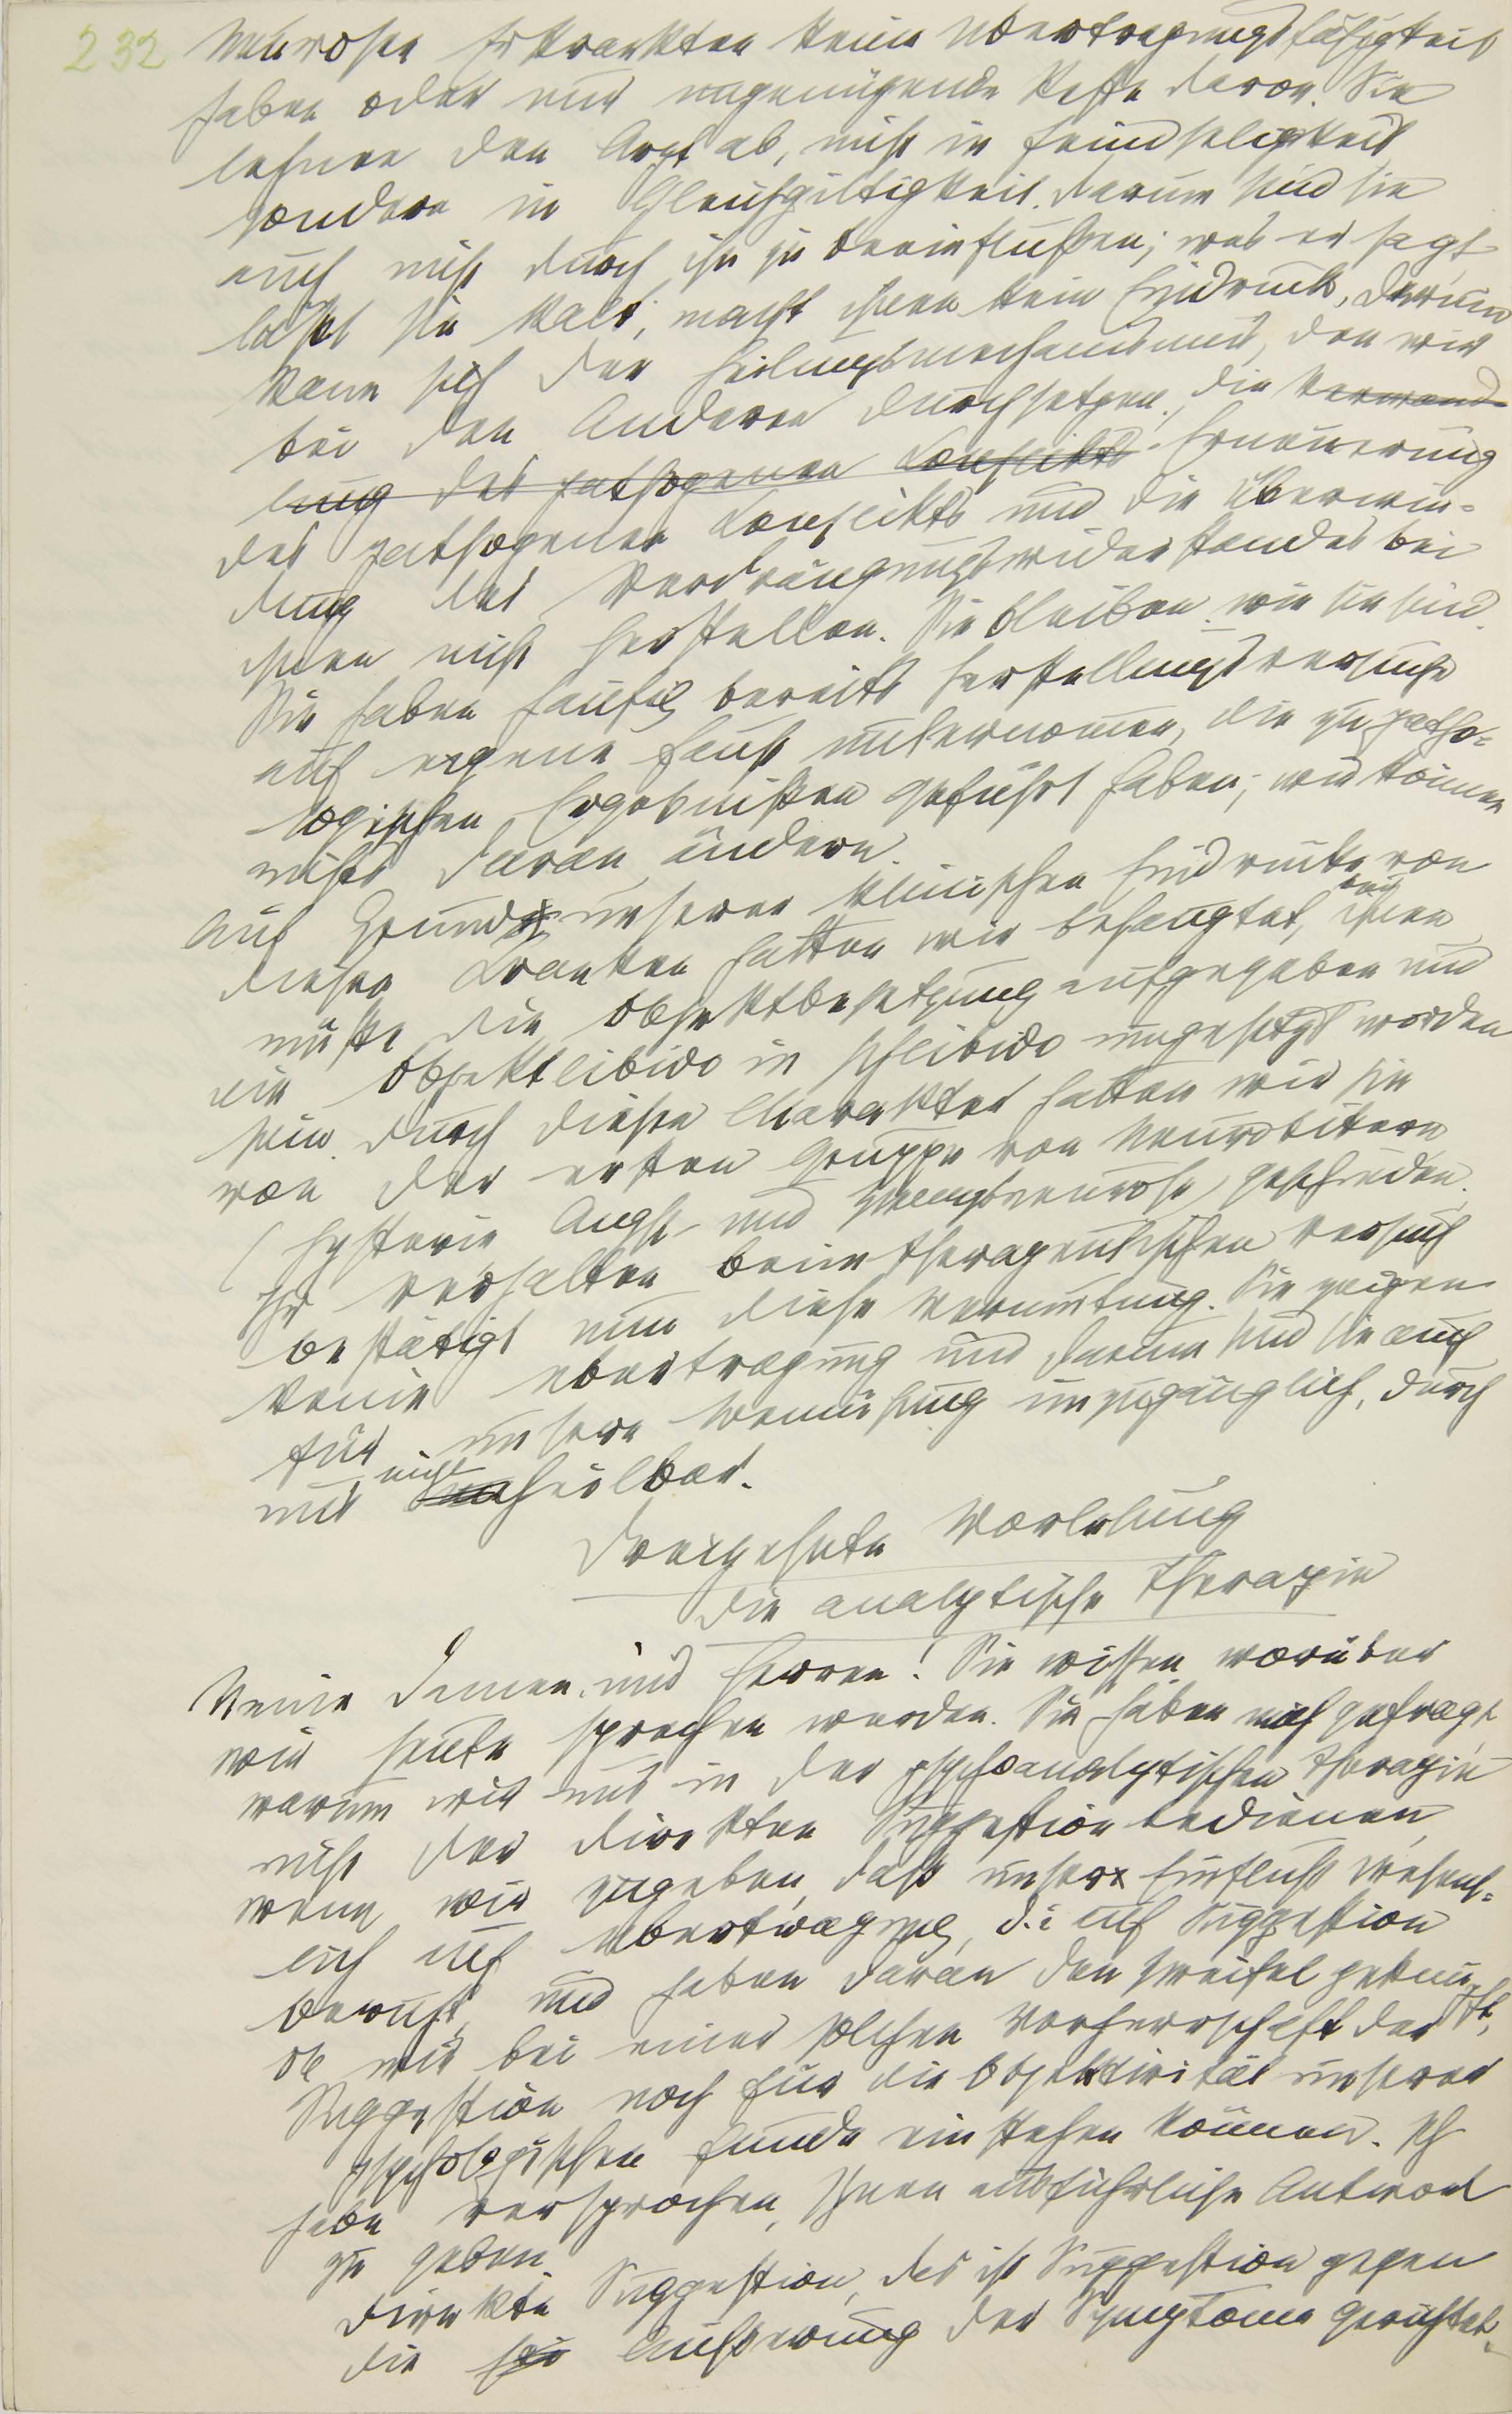 232
Neurosen Erkrankten keine Übertragungsfähigkeit
haben oder nur ungenügende Reste davon. Sie
lehnen den Arzt ab, nicht in Feindseligkeit
sondern in Gleichgiltigkeit. Darum sind sie
auch nicht durch ihn zu beeinflußen; was er sagt
läßt sie kalt, macht ihnen kein Eindruck, darum
kann sich der Heilungsmechanismus, den wir
bei den Anderen durchsetzen, die Verwand-
lung des pathogenen Konflikts Erneuerung
des pathogenen Konflikts und die Überwin-
dung des Verdrängungswiderstandes bei
ihnen nicht herstellen. Sie bleiben wie sie sind.
Sie haben häufig bereits Herstellungsversuche
auf eigene Faust unternommen, die zu patho-
logischen Ergebnißen geführt haben; wir können
nichts daran ändern.
Auf Grund unserer klinischen Eindrücke von
diesen Kranken hatten wir behauptet, bei ihnen
müßte die Objektbesetzung aufgegeben und
die Objektlibido in Ichlibido umgesetzt worden
sein. Durch diesen Charakter hatten wir sie
von der ersten Gruppe von Neurotikern
(Hysterie Angst- und Zwangsneurose) geschieden.
Ihr Verhalten beim therapeutischen Versuch
bestätigt nun diese Vermutung. Sie zeigen
keine Übertragung und darum sind sie auch
für unsere Bemühung unzugänglich, durch
uns nicht heilbar.
Die analytische Therapie
Meine Damen und Herren! Sie wissen worüber
wir heute sprechen werden. Sie haben mich gefragt,
warum wir uns in der psychoanalytischen Therapie
nicht der direkten Suggestion bedienen,
wenn wir zugeben, daß unser Einfluß wesent-
lich auf Übertragung, d.i auf Suggestion
beruht, und haben daran den Zweifel geknüpft,
ob wir bei einer solchen Vorherrschaft der
Suggestion noch für die Objektivität unserer
psychologischen Funde einstehen können. Ich
habe versprochen, Ihnen ausführliche Antwort
zu geben.
Direkte Suggestion, das ist Suggestion gegen
die Äußerung der Symptome gerichtet,